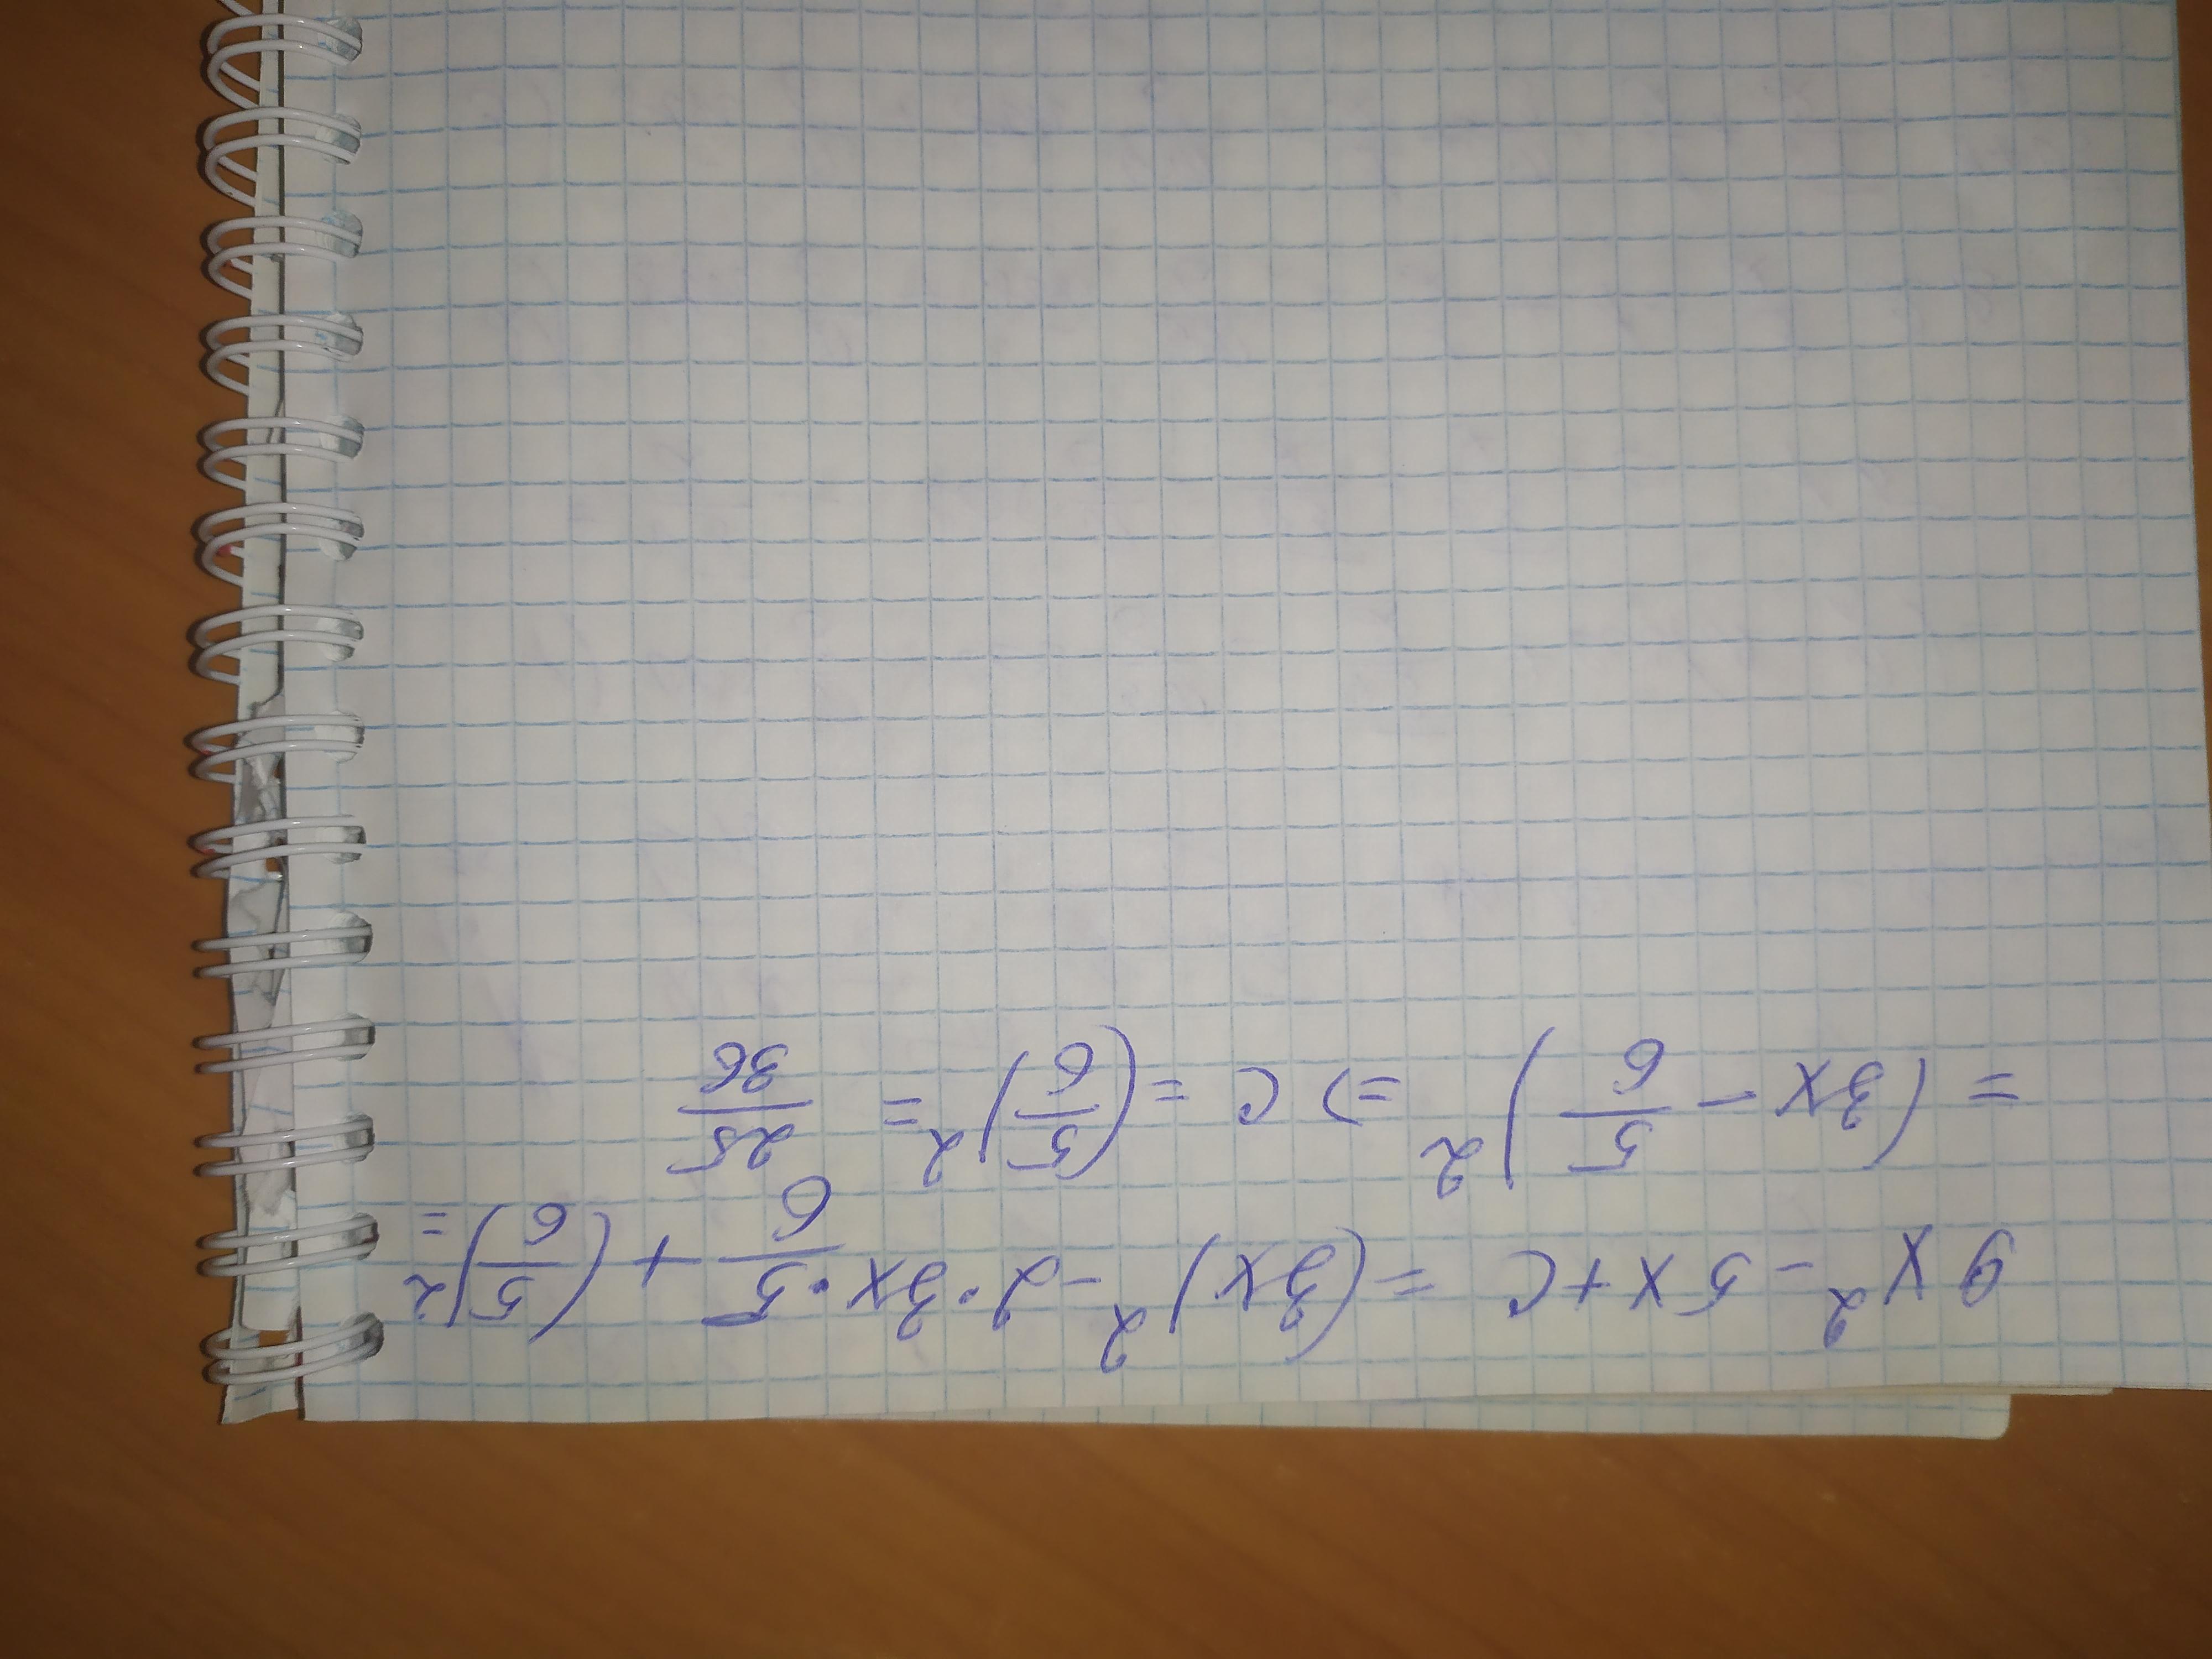 9x² - 5x + c = (3x)² - 2·3x·5/6 + (5/6)² =
= (3x - 5/6)² => c = (5/6)² = 25/36